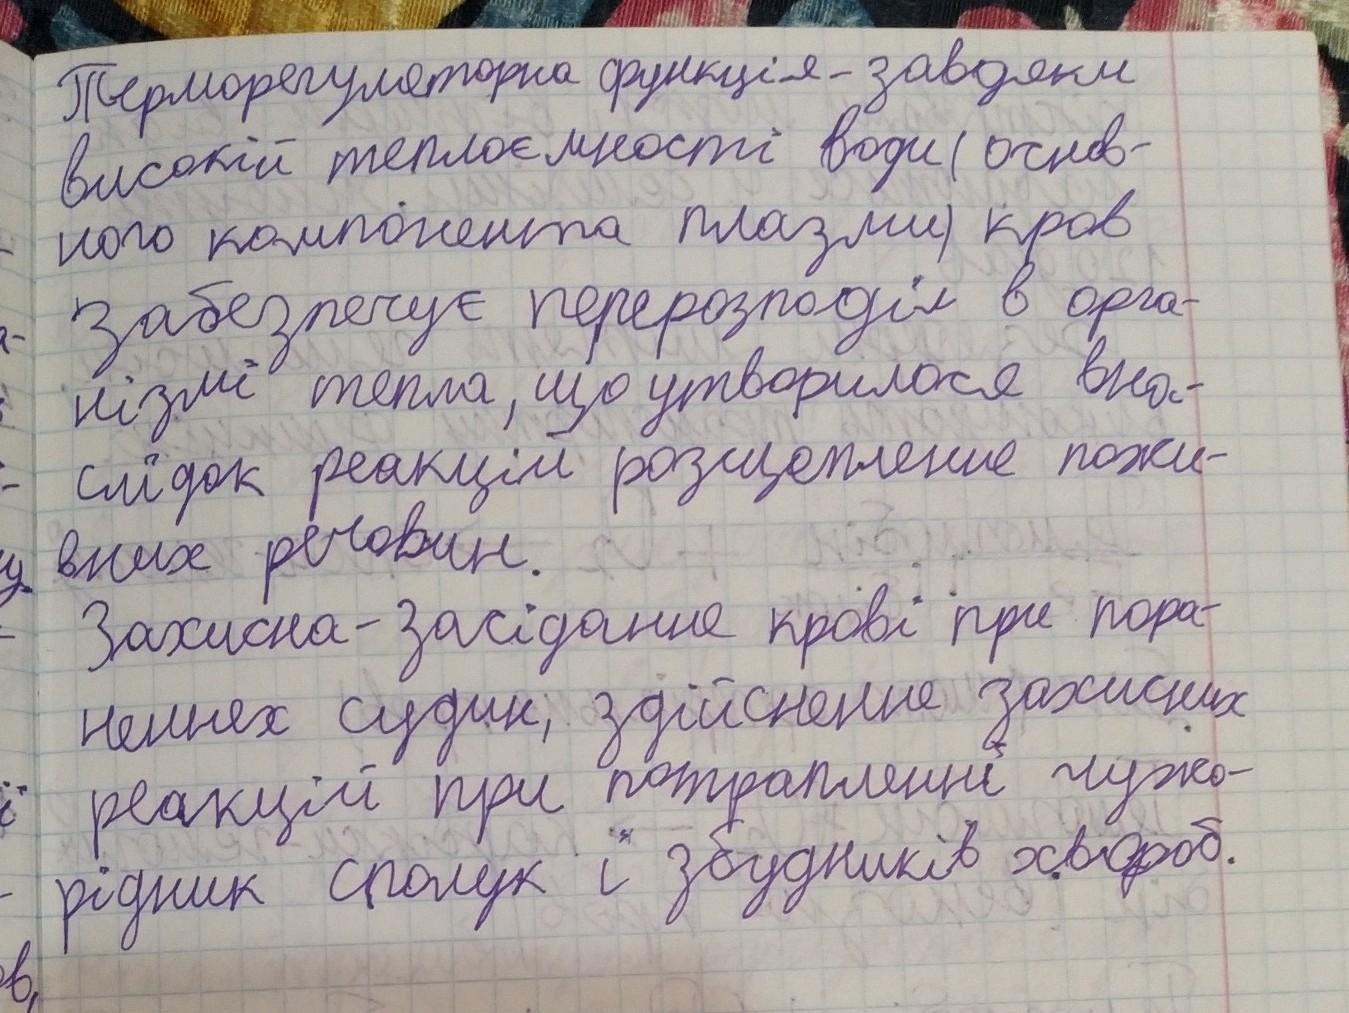 Терморегуляторна функція - завдяки
високій теплоємності води (основ-
ного компонента плазми) кров
забезпечує перерозподіл в орга-
нізмі тепла, що утворилося вна-
слідок реакцій розщеплення пожи-
вних речовин.
Захисна - засідання крові при пора-
неннях судин, здійснення захисних
реакцій при потраплянні чужо-
рідних сполук і збудників хвороб.